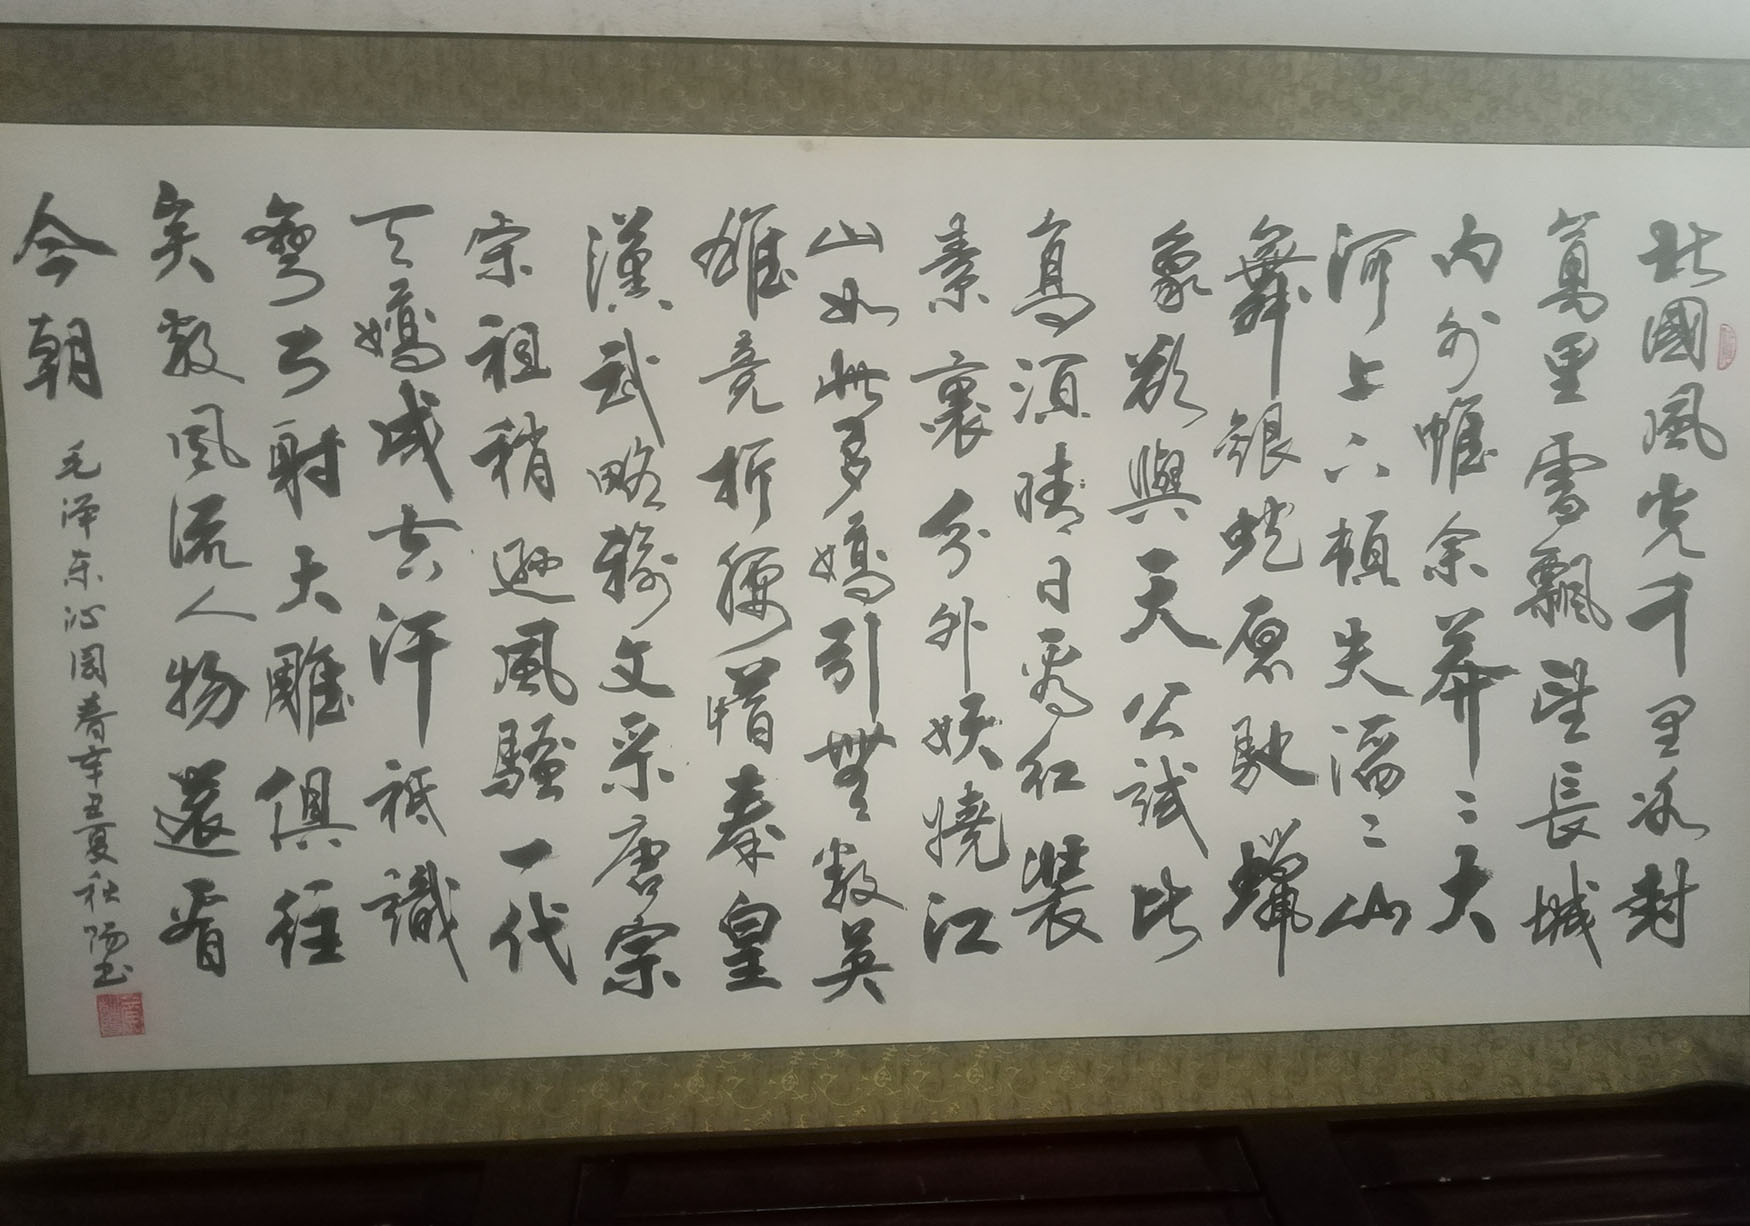 北國風光千里冰封
萬里雪飄望長城
內外惟余莽々大
河上下頓失滔々山
舞銀蛇原馳蠟
象欲與天公試比
高須晴日看紅裝
素裹分外妖嬈江
山如此多嬌引無數英
雄竞折腰惜秦皇
漢武略輸文采唐宗
宋祖稍遜風騷一代
天嬌成吉汗祇識
彎弓射大雕俱往
矣數風流人物還看
今朝
毛泽东沁园春辛丑夏秋陽书